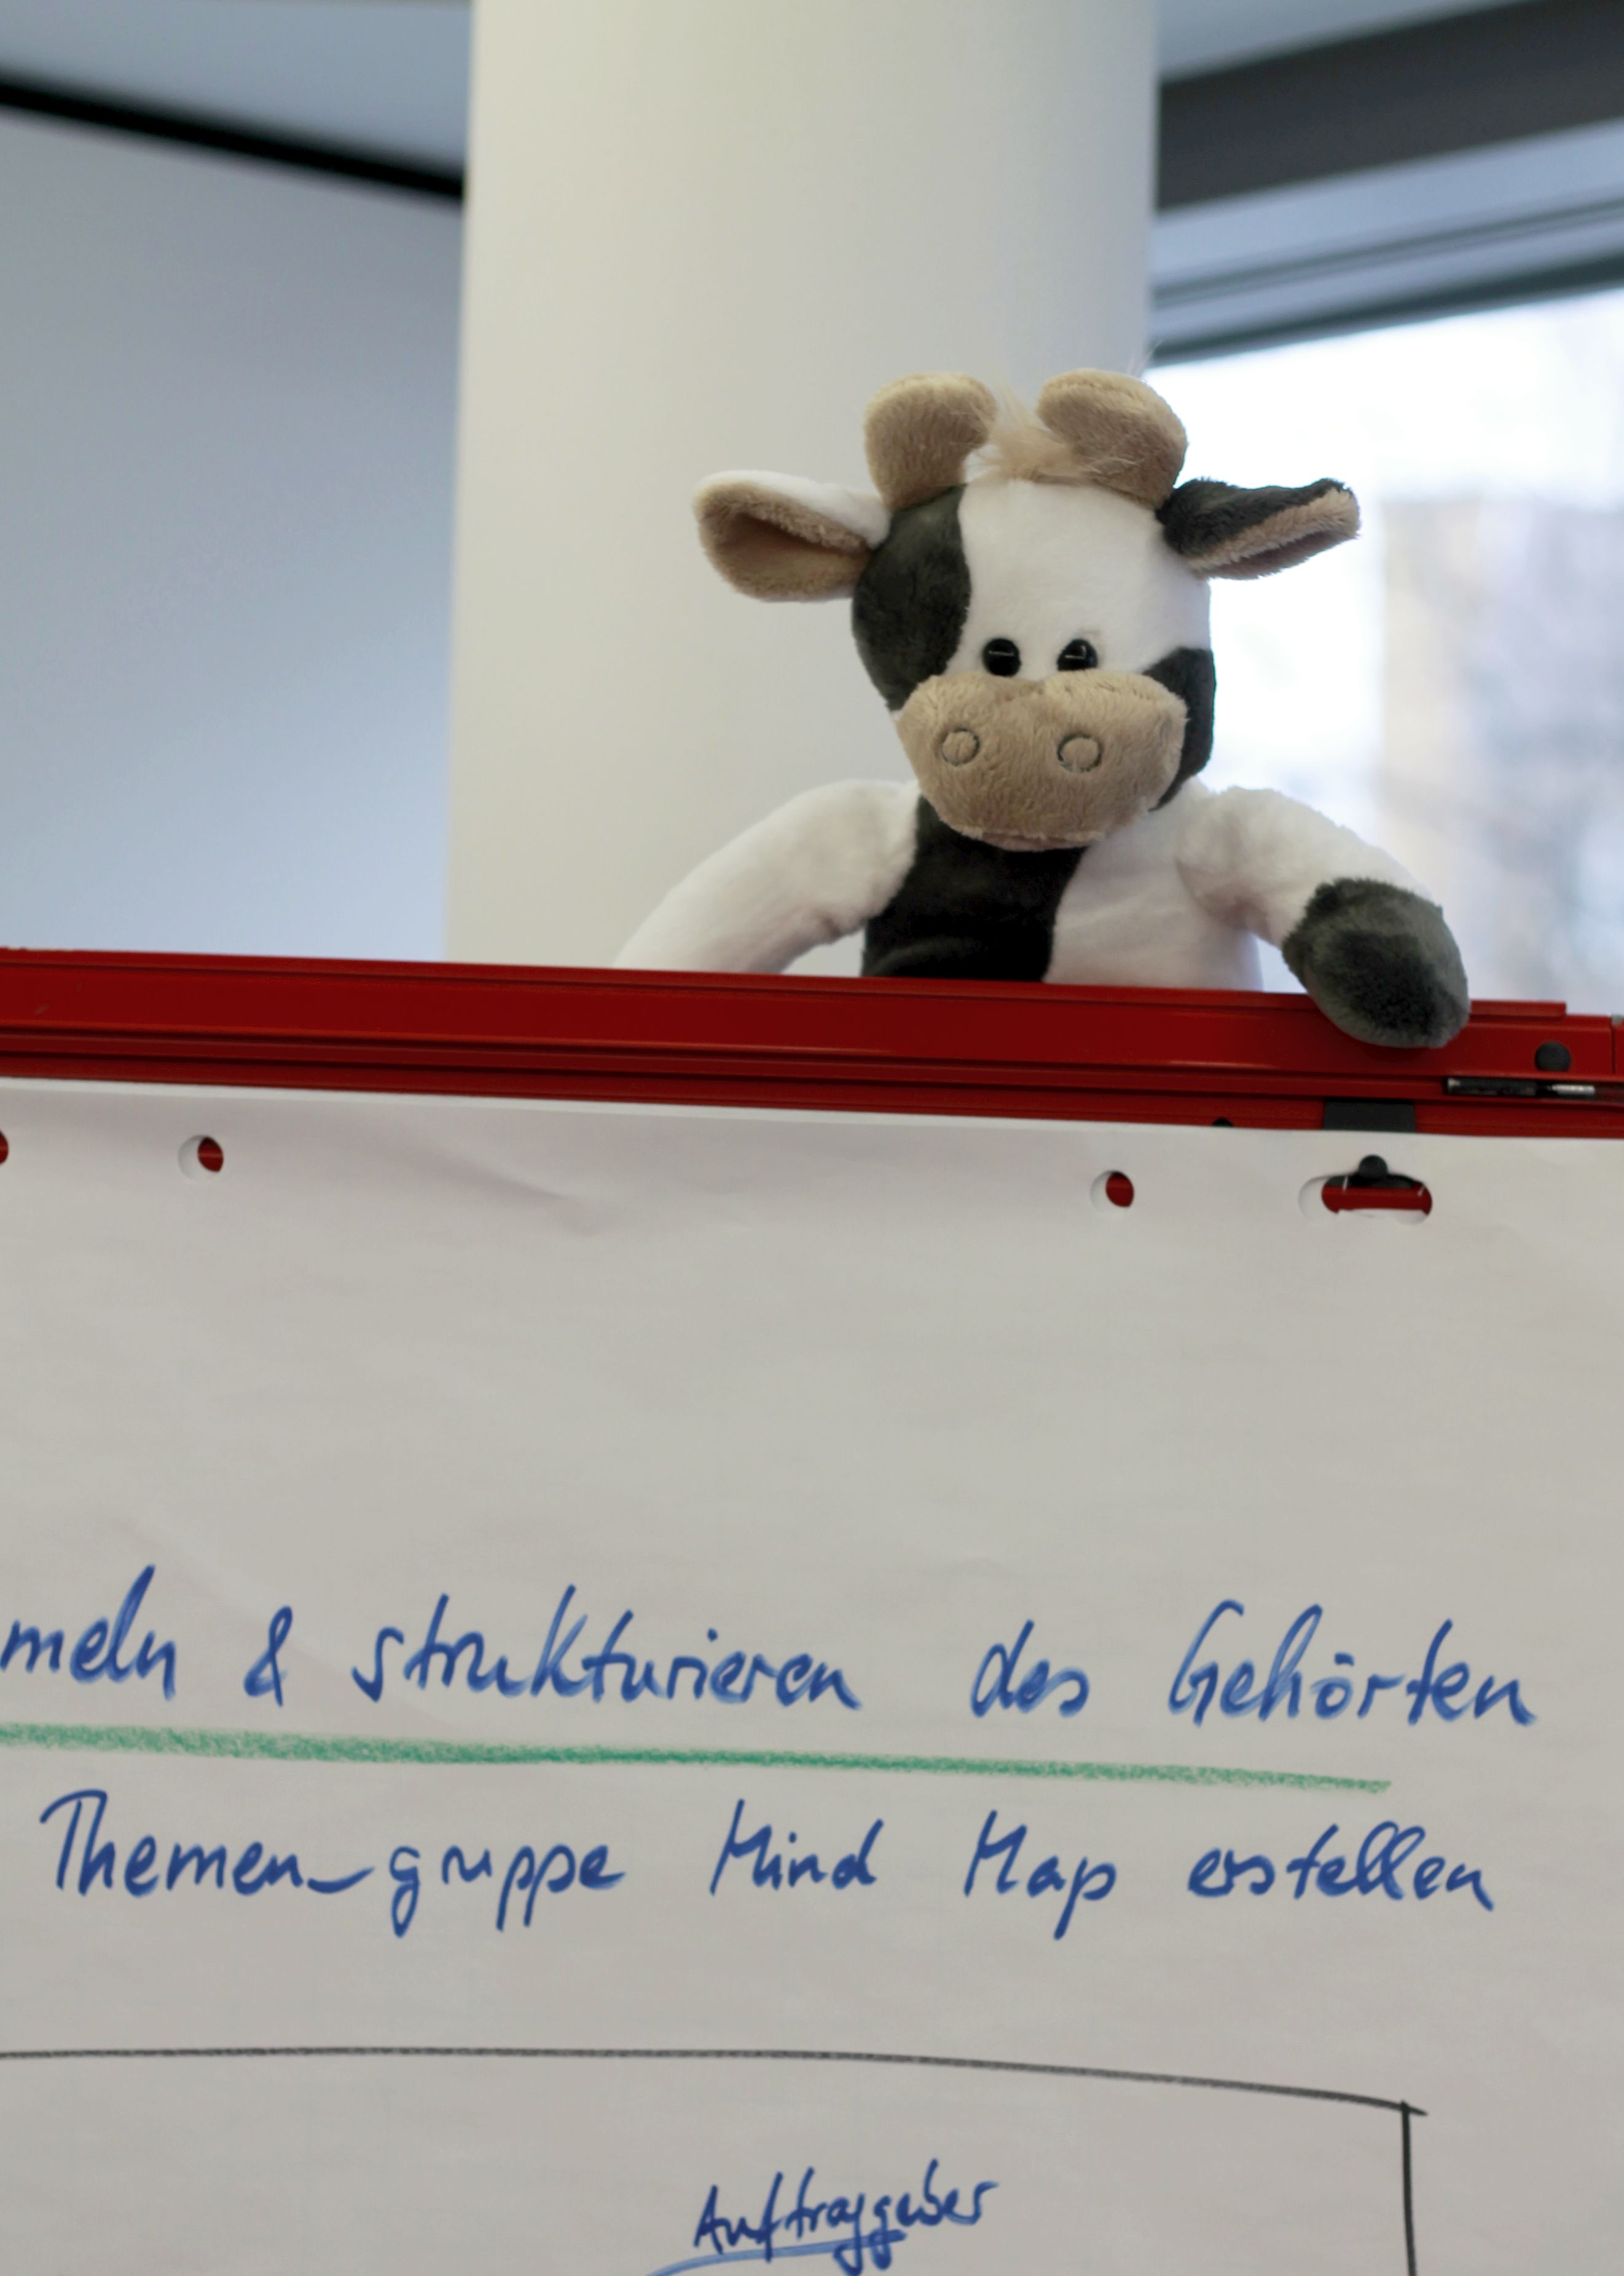 meln & strukturieren des Gehörten
Themen-gruppe Mind Map erstellen
Auftraggeber